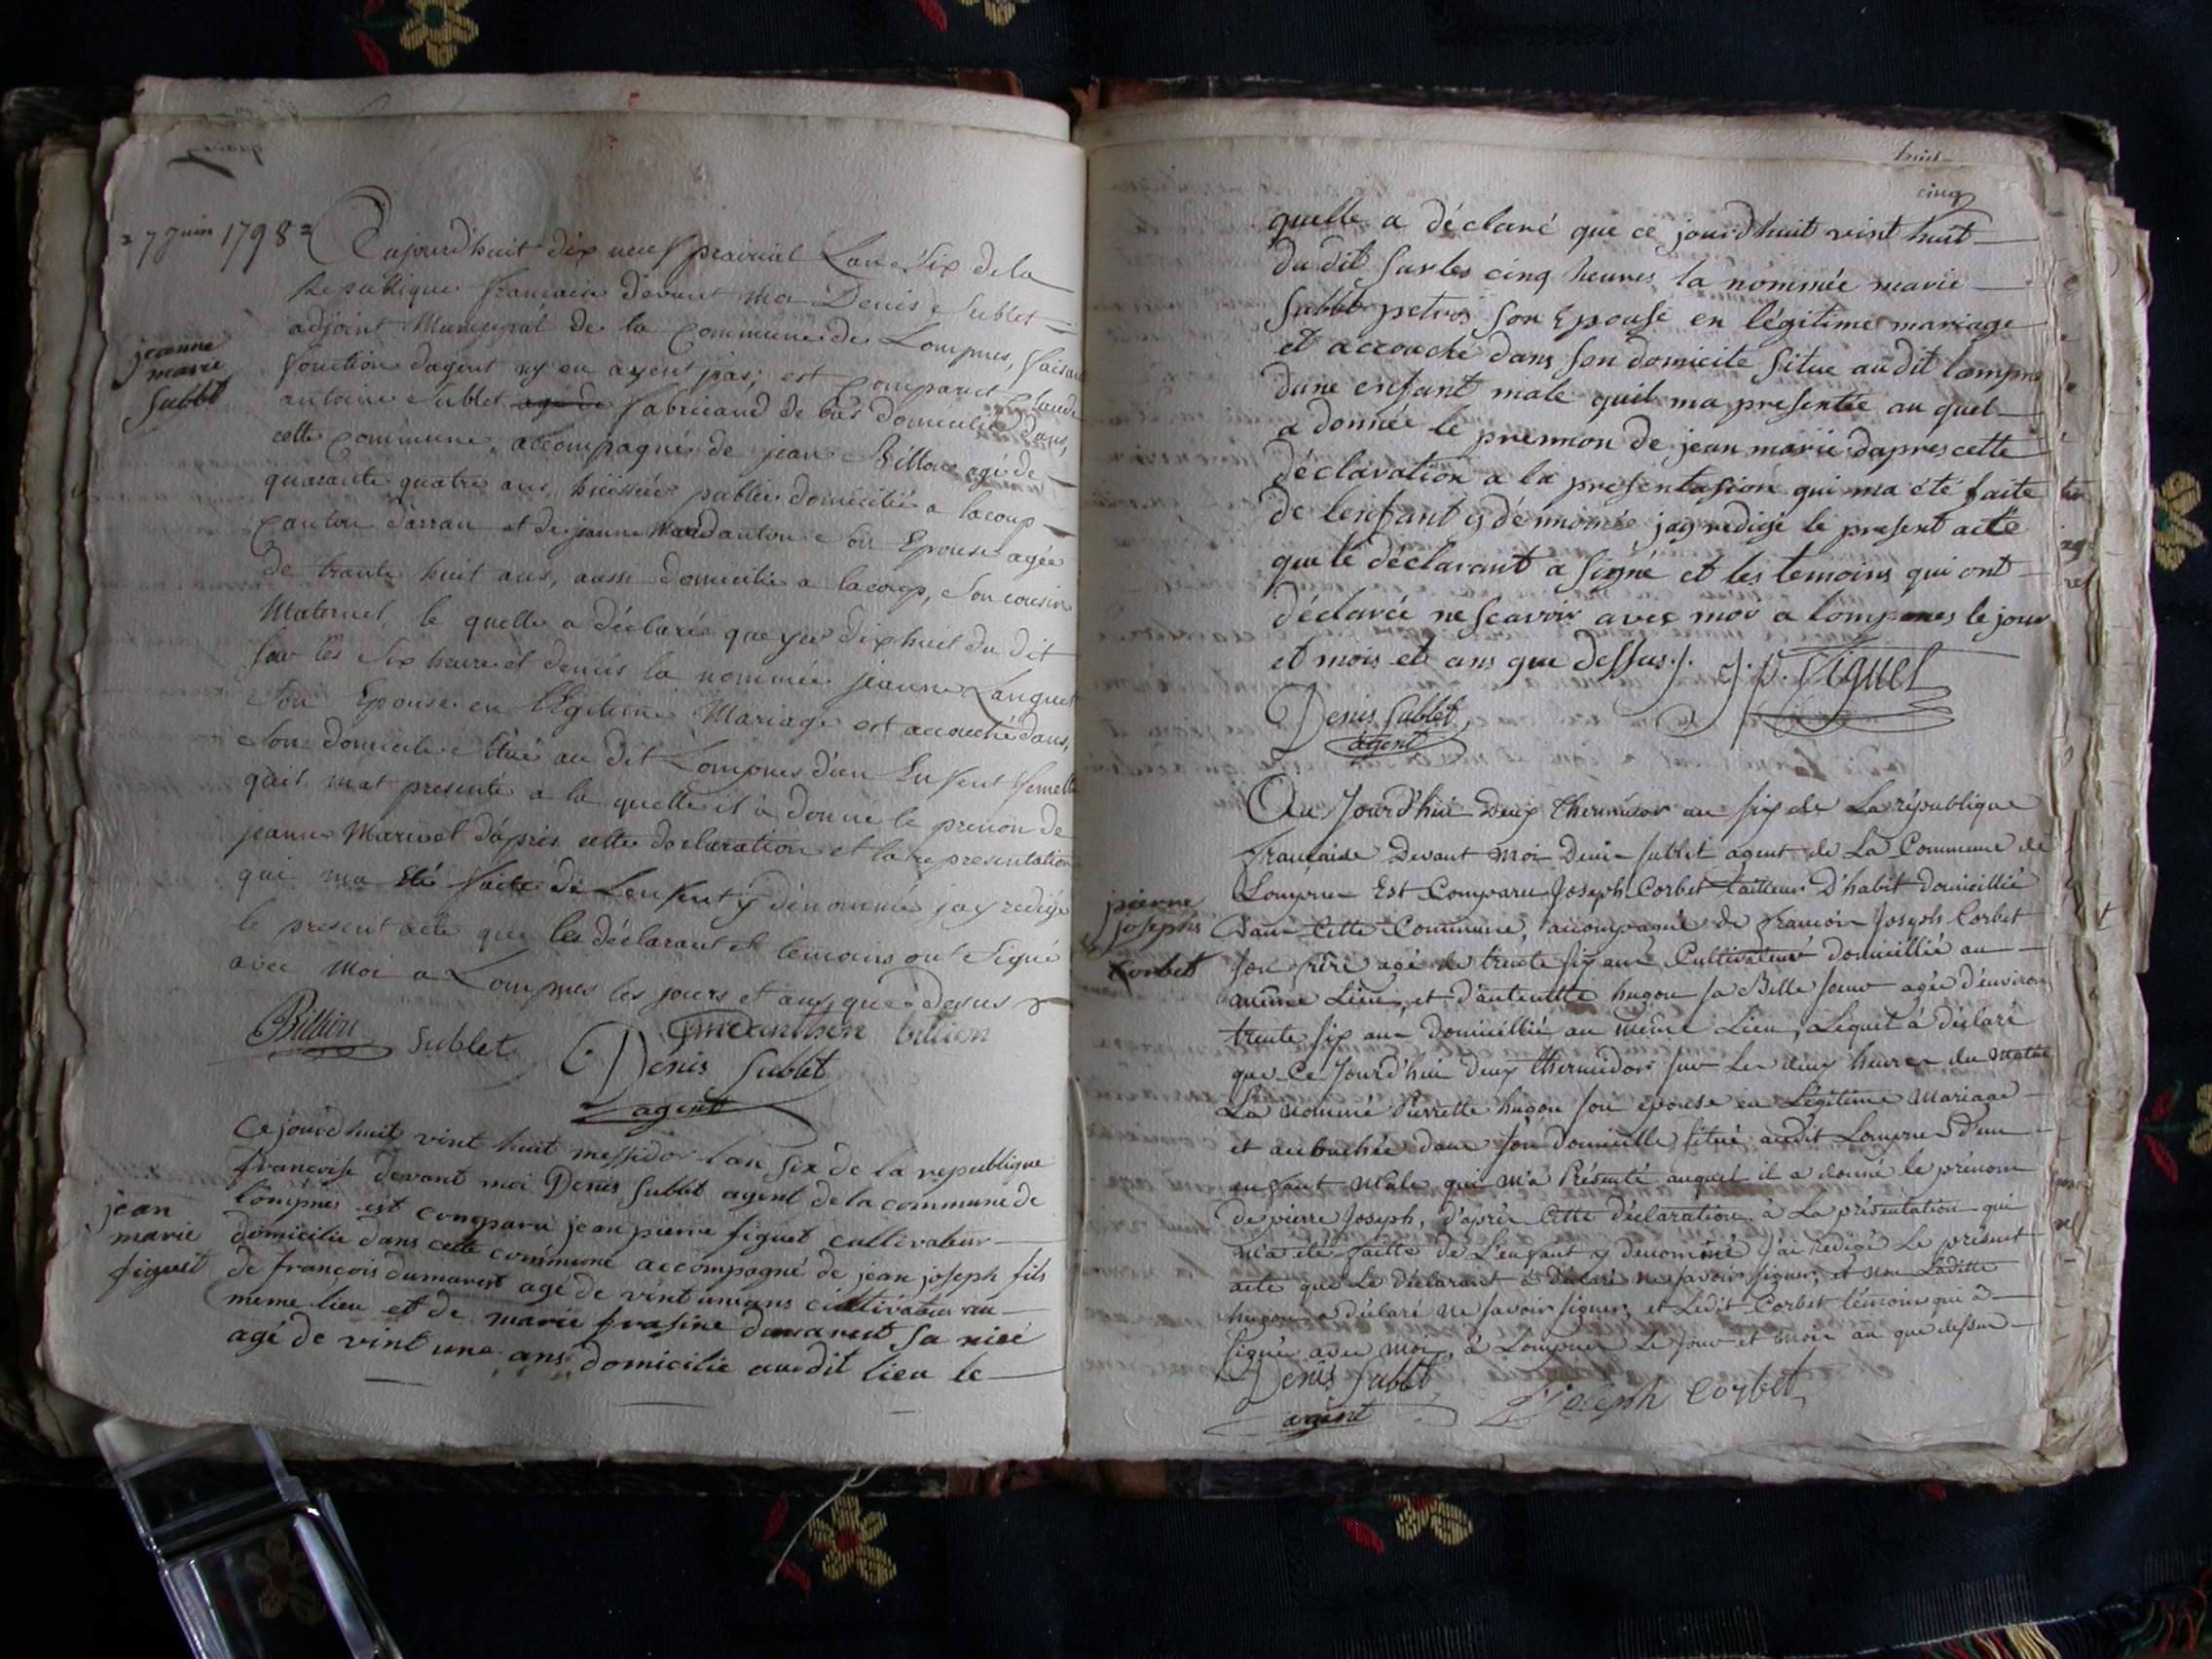 = 7 Juin 1798 =
Cajourd'huit dix neuf prairial Lan Six de la
Republique francaise devant moi Denis Sublet
adjoint Municipal de la Commune de Lompnes, faisant
fonction dagent ny en ayent pas; est comparut Claude
antoine Sublet agé de fabricand de bas domicilié dans
cette Commune, accompagné de jean Billion agé de
quarante quatre ans, huissier public domicilié a lacoup
canton darran et de jeanne danton son Epouse agée
de trante huit ans, aussi domicilié a lacoup, son cousin
Maternel le quelle a déclaré que yer dix huit du dit
sur les six heure et demis la nommée jeanne Languet
son Epouse en légitime Mariage est accouché dans,
son domicile situé au dit Lompnes d'un Enfent femelle
quil mat presenté a la quelle il a donné le prenon de
jeanne Mariee d'après cette declaration et la representation
qui ma été faite de Lenfent y dénommé jay redigé
le present acte que les déclarant et temoins ont signé
avec Moi a Lompnes les jours et ans que desus
jeanne
marie
Sublet
Billion Sublet danthon billion
Denis Sublet
agent
Ce jourdhuit vint huit messidor lan six de la republique
francoise devant moi Denis Sublet agent de la commune de
lompnes est comparu jean pierre figuet cultivateur
domicilie dans cette commune accompagné de jean joseph fils
de francois dumarest agé de vint un ans cultivateur au
meme lieu et de marie frasine dumarest sa niéé
agé de vint une ans domicilie audit lieu le
jean
marie
figuet
huit
cinq
quelle a déclaré que ce jourdhuit vint huit
du dit sur les cinq heures la nommée marie
Sublet petros son Epouse en légitime mariage
et accouché dans son domicile situe au dit lompnes
dune enfant male quil ma presentée au quel
a donnée le prennon de jean marie dapres cette
déclaration a la presentasion qui ma été faite
de lenfant y dénnomé jay redigé le present acte
que le déclarant a signé et les temoins qui ont
déclarée ne scavoir avec moy a lompnes le jour
et mois et ans que dessus./. J. P. Figuet
Denis Sublet
agent
Au Jourd'hui deux thermidor an six de La république
francaise Devant moi Denis Sublet agent de La Commune de
Lompnes Est Comparu Joseph Corbet tailleur D'habit domicillié
dans Cette Commune, accompagné de francois Joseph Corbet
son frere agé de trente six ans Cultivateur domicillié au
même Lieu, et d'antenette hugon sa Belle soeur agée d'environ
trente six ans domicillié au même Lieu, Lequel à déclaré
que Ce Jourd'hui deux thermidor sur Les deux heures du Matin
La Nommé Pierrette hugon son epouse en Légitime Mariage
et accouchée dans son domicille situé audit Lompnes d'un
enfant Male qui M'a Présenté auquel il a donné le prénom
de pierre Joseph, d'après Cette déclaration à La présentation qui
M'a été faitte de L'enfant y denommé J'ai Redigé Le présent
acte que Le Déclarant à Déclaré ne savoir signer; et Laditte
hugon a Déclaré Ne savoir signer, et Ledit Corbet témoin qui à
signé avec Moi, à Lompnes Le Jour et Mois an que dessus
pierre
joseph
Corbet
Denis Sublet
agent
Joseph Corbet